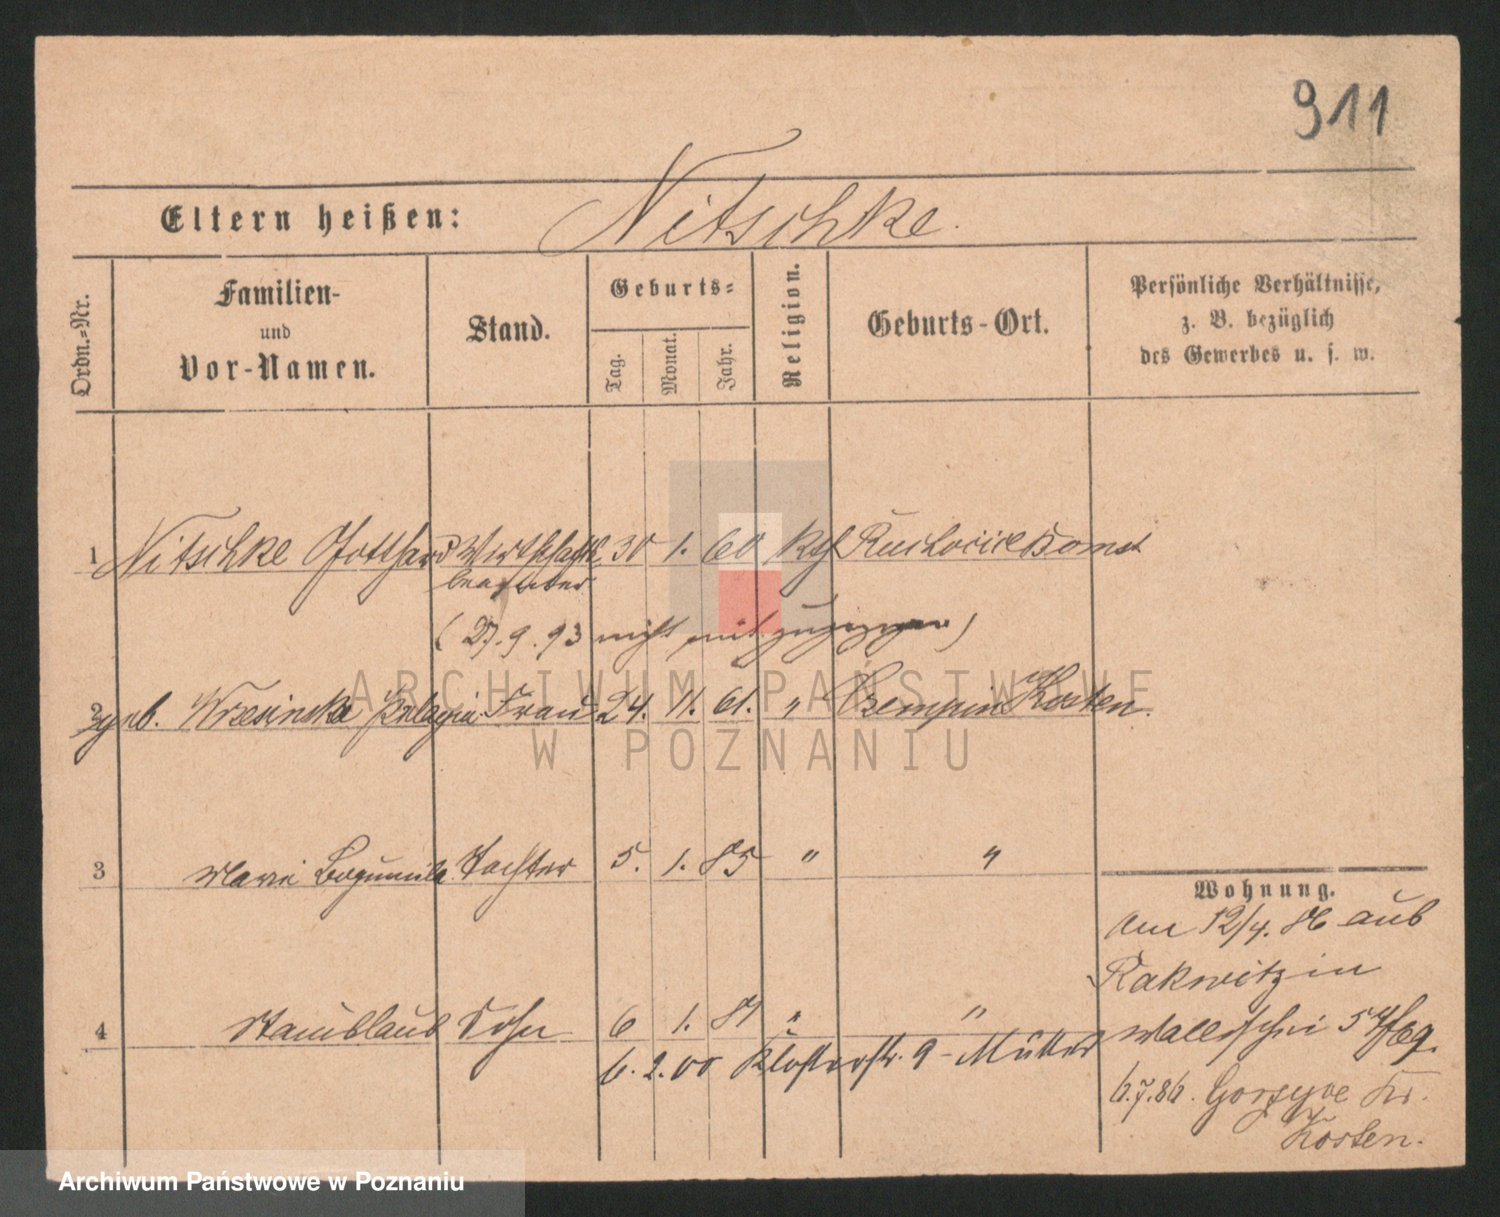 911
Eltern heißen: Nitschke.
Ordn.-Nr.
Familien-
und
Vor-Namen.
Stand.
Geburts-
Tag.
Monat.
Jahr.
Religion.
Geburts-Ort.
Persönliche Verhältnisse,
z. B. bezüglich
des Gewerbes u. s. w.
1 Nitschke Gotthard Wirthschafts 30 1. 60 kth Ruchocice Bomst
beamter
(27. 9. 93 nicht mit zugezogen)
2 geb. Krzesinska Pelagia Frau 24. 11. 61. " Czempin Kosten.
3 Marie Bogumila Tochter 5. 1. 85 " "
Wohnung.
Am 12/4. 86 aus
Rakwitz in
4 Stanislaus Sohn 6 1. 87 " "
Wallischei 5 Pfleg.
6. 2. 00 Klosterstr. 9 - Mutter
6.7.86. Kr.
Kosten.
ARCHIWUM PAŃSTWOWE
W POZNANIU
Archiwum Państwowe w Poznaniu